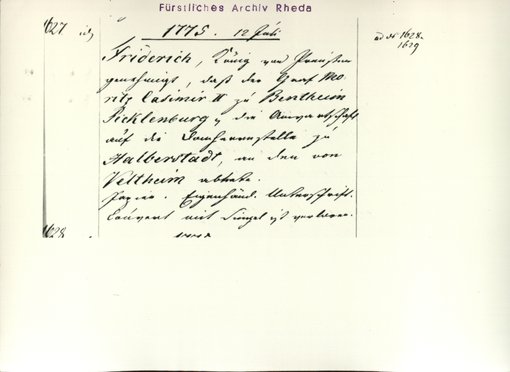 Fürstliches Archiv Rheda
1627
1775. 12 Juli
ad N 1628.
1629
Friderich, König von Preußen
genehmigt, daß der Graf Mo-
ritz Casimir II zu Bentheim
Tecklenburg, die Anwartschaft
auf die Domherrnstelle zu
Halberstadt, an den von
Veltheim abtrete.
Papier. Eigenhänd. Unterschrift.
Couvert mit Siegel ist verloren.